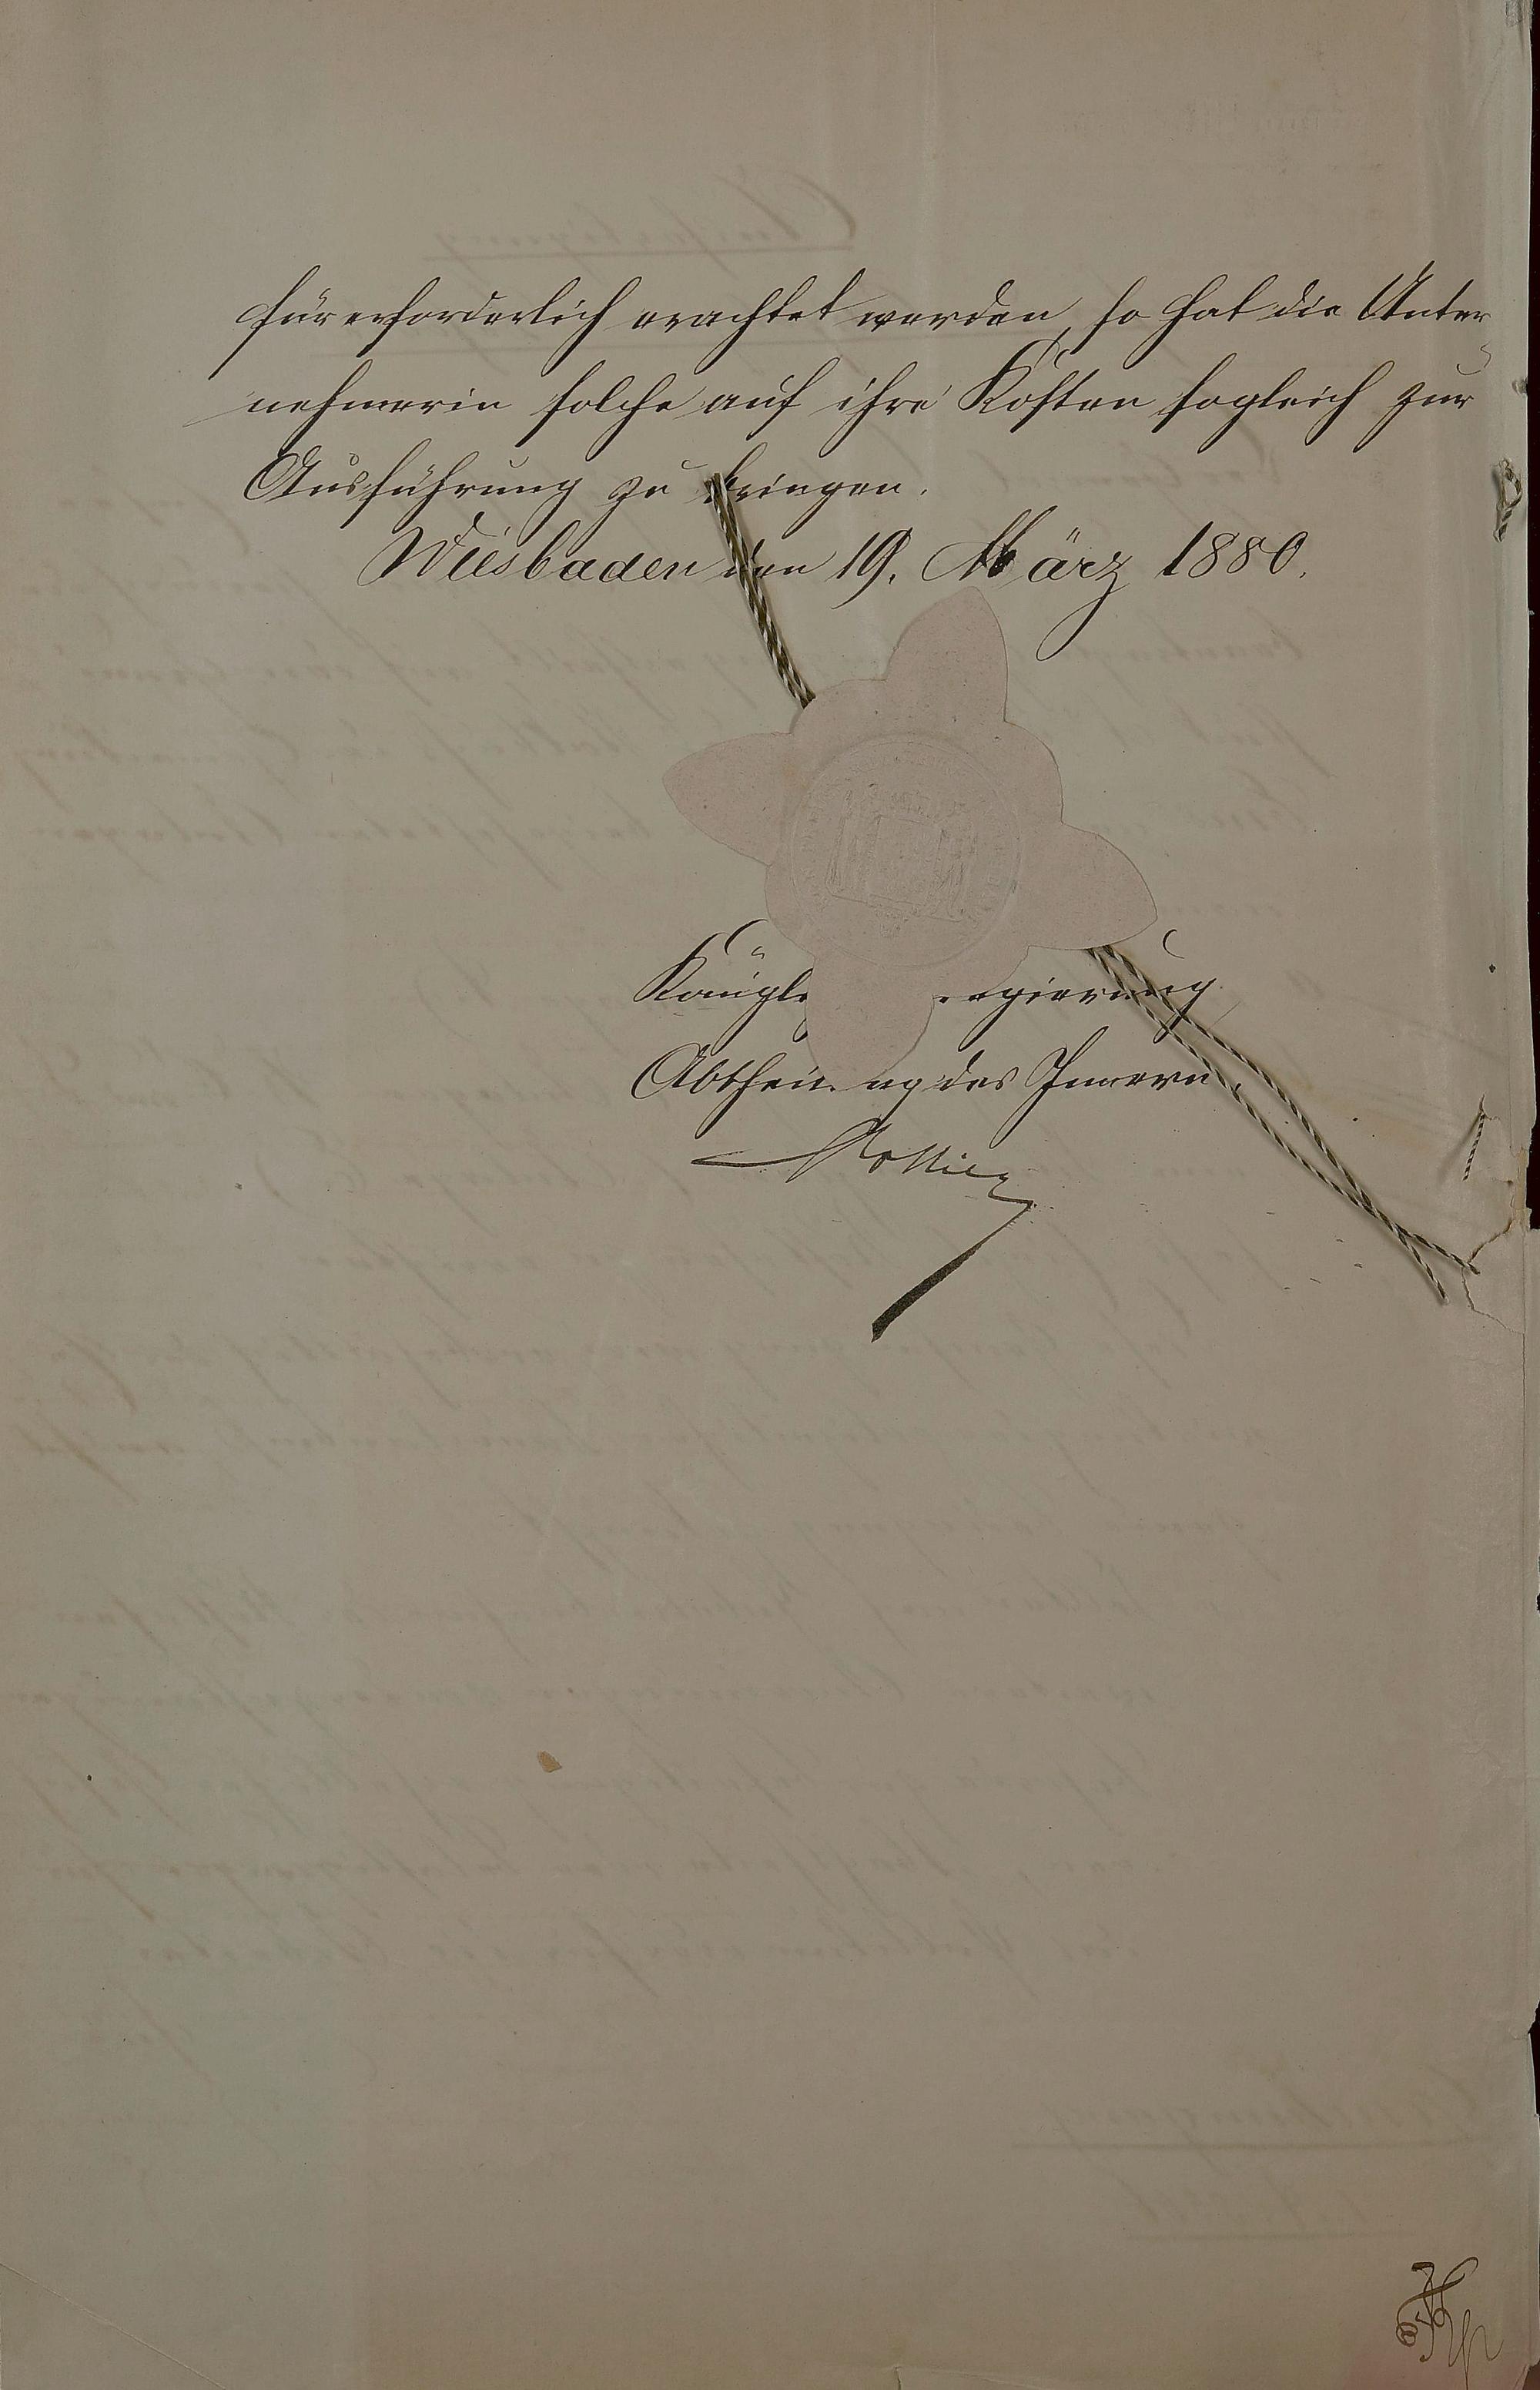 für erforderlich erachtet werden, so hat die Unter-
nehmerin solche auf ihre Kosten sogleich zur
Ausführung zu bringen.
Wiesbaden den 19. März 1880.
Königl egierung
Abtheil ng des Innern.